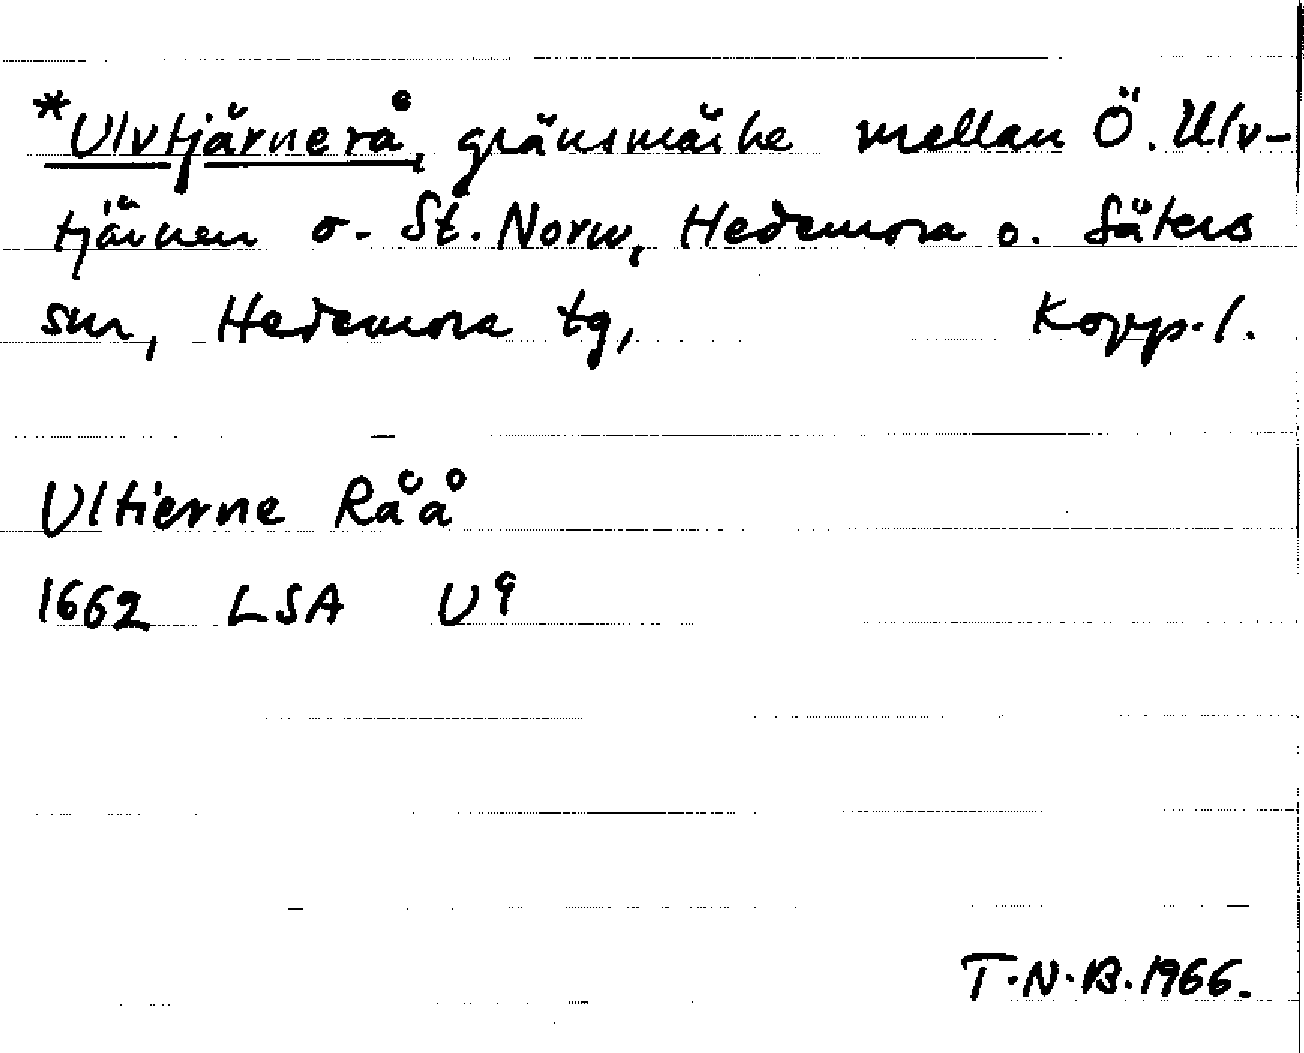 *Ulvtjärnerå, gränsmärke mellan Ö. Ulv-
tjärnen o. St. Norw, Hedemora o. Säters
snr, Hedemora tg, Kopp. l.
Ultierne Råå
1662 LSA U9
T.N.B. 1966.